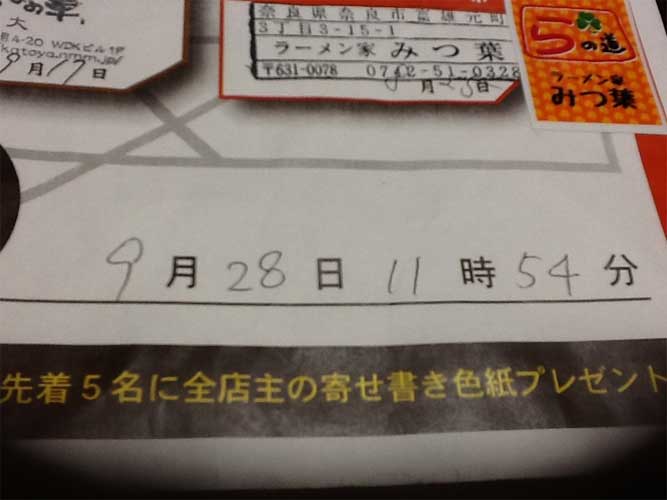 大
4-20 WDKビル1F
katoya.nmm.jp/
9月17日
奈良県奈良市富雄元町
3丁目3-15-1
ラーメン家 みつ葉
〒631-0078 0742-51-0328
9月28日
らの道
ラーメン家
みつ葉
9月28日11時54分
先着5名に全店主の寄せ書き色紙プレゼント